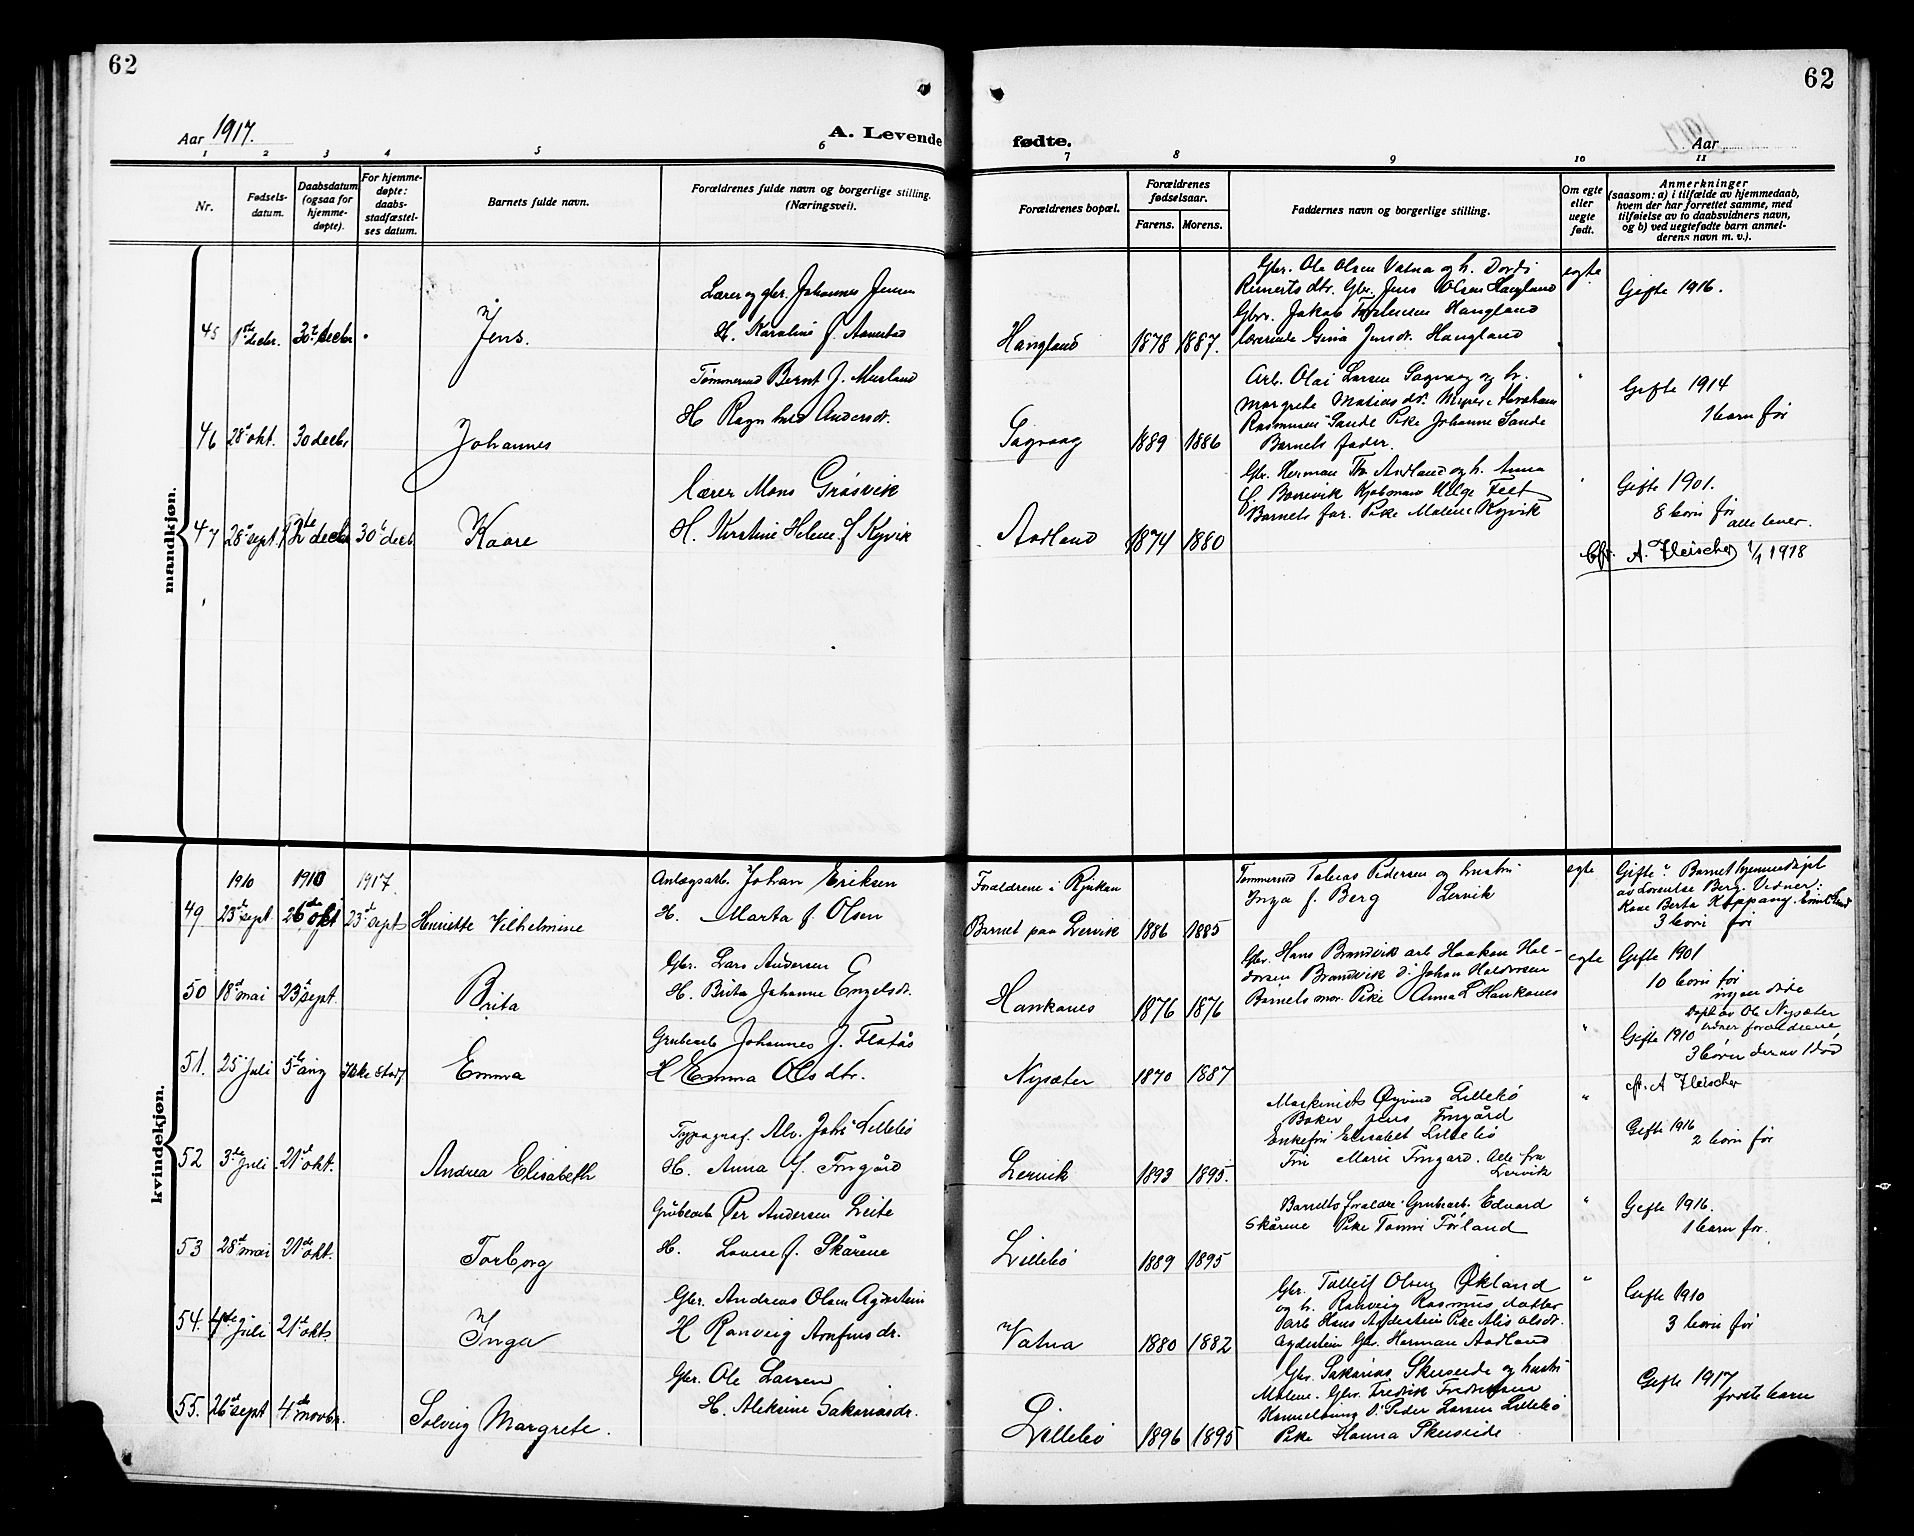 62
62
Aar 1917.
A. Levende
fødte.
Aar
1 2 3 4 5 6 7 8 9 10 11
Nr.
Fødsels-
datum.
Daabsdatum
(ogsaa for
hjemme-
døpte).
For hjemme-
døpte:
daabs-
stadfæstel-
ses datum.
Barnets fulde navn.
Forældrenes fulde navn og borgerlige stilling.
(Næringsvei).
Forældrenes bopæl.
Forældrenes
fødselsaar.
Farens. Morens.
Faddernes navn og borgerlige stilling.
Om egte
eller
uegte
født.
Anmerkninger
(saasom: a) i tilfælde av hjemmedaab,
hvem der har forrettet samme, med
tilføielse av to daabsvidners navn,
og b) ved uegtefødte barn anmel-
derens navn m. v.).
mandkjøn.
45 1ste decbr. 30te decbr
Jens.
Lærer og gbr. Johannes Jensen
H. Karoline f.
Hangland 1878 1887.
Gbr. Ole Olsen Vatna og h. Dordi
Reinertsdtr. Gbr. Jens Olsen Hangland
Gbr. Jakob Hangland
Gina Jensdr. Hangland
egte
Gifte 1916.
46 28de okt. 30 decbr
Johannes
Tømmermd Bernt J.
H Ragnhild Andersdr.
Sagvaag 1889 1886
Arb. Olai Larsen Sagvaag og h.
Margrete Matiasdtr. Abraham
Rasmusen Sande Pike Johanne Sande
Barnets fader.
"
Gifte 1914
1 barn før
47 28de sept. 12te decbr 30te decb.
Kaare
Lærer Mons Gråsvik
H. Kirstine Helene f Kyvik
Aadland 1874 1880
Gbr. Herman Th. Aadland og h. Anna
f. Borrevik Kjøbmand Helge Teet
Barnets far. Pike Malene Kyvik
"
Gifte 1901.
8 born før
alle lever.
Cfr. A. Fleischer 1/1 1918
kvindekjøn.
49 1910 23de sept. 1910 26de okt 1917. 23de sept
Henriette Vilhelmine
Anlægsarb. Johan Eriksen
H. Marta f. Olsen
Forældrene i Rjukan
Barnet paa Lervik 1886 1885
Tømmermd Tobias Pedersen og hustri
Inga f. Berg Lervik
egte
Gifte. Barnet hjemmedøpt
av Lorentse Berg. Vidner:
Kone Berta Koppang.
3 born før
50 18de mai 23de sept.
Brita
Gbr. Lars Andersen
H. Brita Johanne Engelsdr.
Hankanes 1876 1876
Gbr. Hans Brandvik arb Haakon Hal-
dorsen Brandvik d. Johan Haldorsen
Barnets mor. Pike Anna L Hankanes
egte
Gifte 1901
10 born før
ingen døde
51. 25 Juli 5te aug Ikke stadf
Emma
Grubearb Johannes J. Flatås
H Emma Olsdtr.
Nysæter 1870 1887
"
Døpt av Ole Nysæter
vidner forældrene
Gifte 1910
3 børn derav 1 død
cfr. A Fleischer
52 3de Juli 21de okt.
Andrea Elisabeth
Typograf. Alv. Johs Lillebø
H. Anna f. Tungård
Lervik 1893 1895.
Maskinists Øyvind Lillebø
Baker Jens Tungård
Enkefru Elisabet Lillebø
Fru Marie Tungard. Alle fra
Lervik
"
Gifte 1916
2 born før
53 28de mai 21de okt.
Torborg
Grubearb Per Andersen Leite
H. Lovise f. Skårene
Lillebø 1889 1895
Barnets foraldre Grubearb. Edvard
Skårene Pike Tomi Førland
"
Gifte 1916.
1 barn før.
54. 4de Juli 21de okt.
Inga
Gbr. Andreas Olsen Agdestein
H Ranveig Arnfinsdr.
Vatna 1880 1882
Gbr. Tolleif Olsen Økland
og h. Ranveig Rasmusdatter
arb Hans Agdestein Pike Alis Olsdt.
Agdestein Gbr. Herman Aadland
"
Gifte 1910
3 born før
55. 26de sept 4de novbr.
Solveig Margrete.
Gbr. Ole Larsen
H. Aleksine Sakariasdr.
Lillebø 1896 1895
Gbr. Sakarias Skuseide og hustri
Malene. Gbr. Fredrik Fredriksen
Peder Larsen Lillebø
Pike Hanna Skuseide
Gifte 1917
første barn